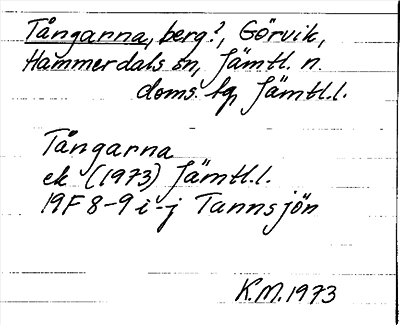 Tångarna, berg?, Görvik,
Hammerdals sn, Jämtl. n.
doms. tg, Jämtl.l.
Tångarna
ek (1973) Jämtl.l.
19F 8-9 i-j Tannsjön
K.M. 1973